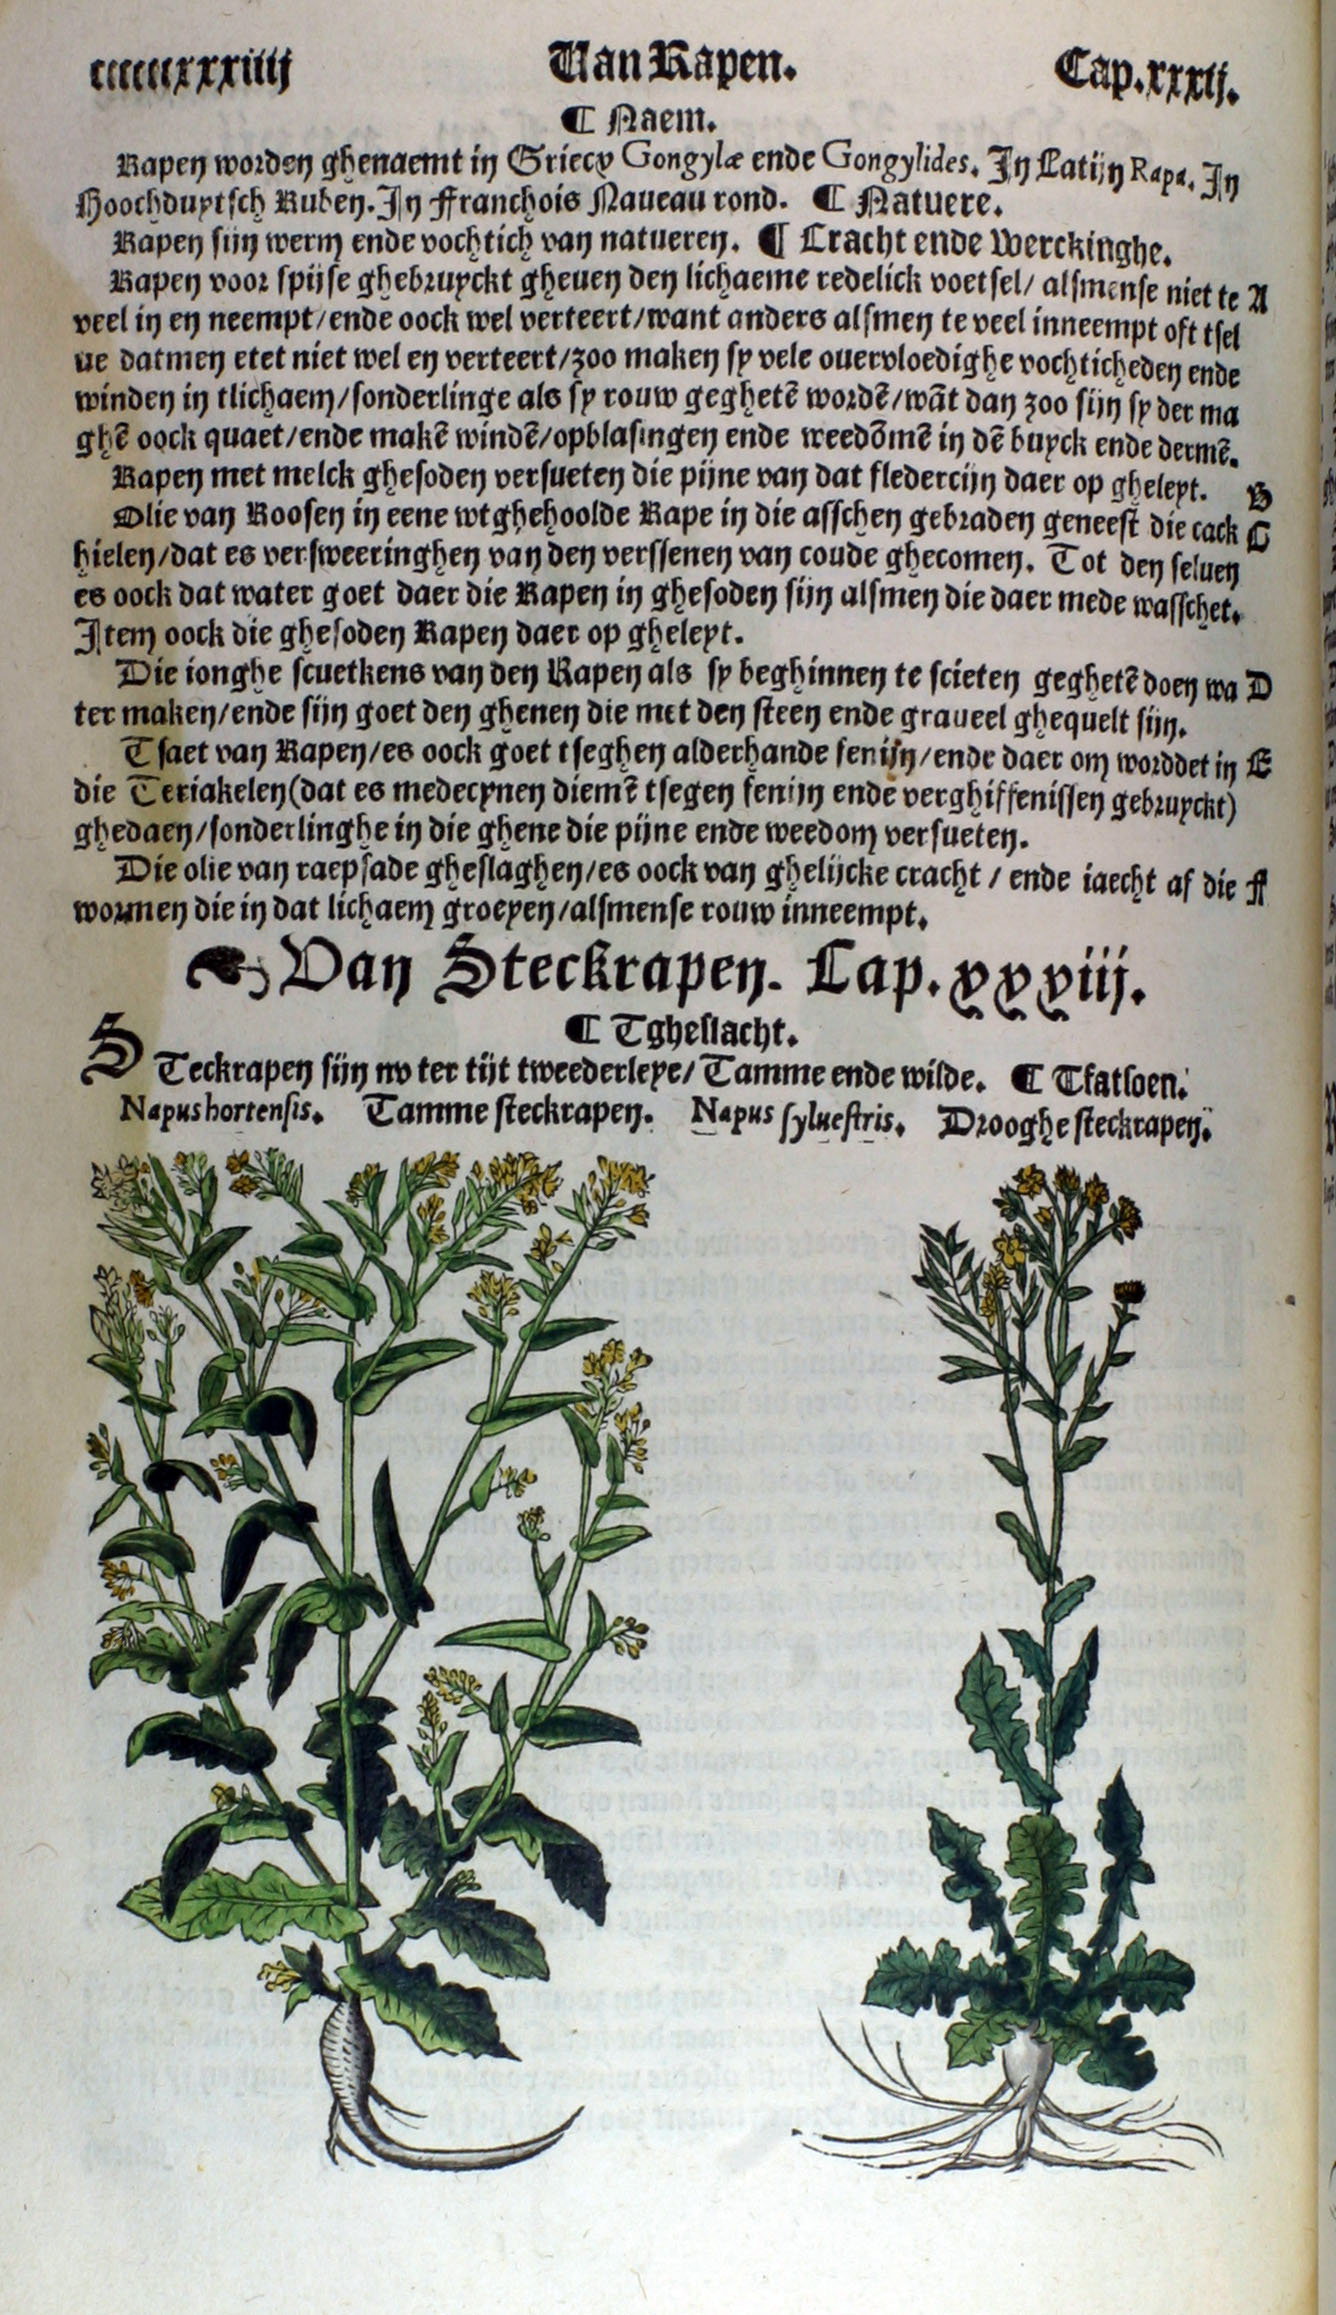 ccccccxxxiiij Van Rapen. Cap.xxxij.
¶ Naem.
Rapen worden ghenaemt in Griecx Gongylæ ende Gongylides. In Latijn Rapa. In
Hoochduytsch Ruben. In Franchois Naueau rond. ¶ Natuere.
Rapen sijn werm ende vochtich van natueren. ¶ Cracht ende Werckinghe.
Rapen voor spijse ghebruyckt gheuen den lichaeme redelick voetsel/ alsmense niet te A
veel in en neempt/ende oock wel verteert/want anders alsmen te veel inneempt oft tsel
ue datmen etet niet wel en verteert/zoo maken sy vele ouervloedighe vochticheden ende
winden in tlichaem/sonderlinge als sy rouw geghetē wordē/wāt dan zoo sijn sy der ma
ghē oock quaet/ende makē windē/opblasingen ende weedōmē in dē buyck ende dermē.
Rapen met melck ghesoden versueten die pijne van dat fledercijn daer op gheleyt. B
Olie van Roosen in eene wtghehoolde Rape in die asschen gebraden geneest die cack C
hielen/dat es versweeringhen van den verssenen van coude ghecomen. Tot den seluen
es oock dat water goet daer die Rapen in ghesoden sijn alsmen die daer mede wasschet.
Item oock die ghesoden Rapen daer op gheleyt.
Die ionghe scuetkens van den Rapen als sy beghinnen te scieten geghetē doen wa D
ter maken/ende sijn goet den ghenen die met den steen ende graueel ghequelt sijn.
Tsaet van Rapen/es oock goet tseghen alderhande fenijn/ende daer om worddet in E
die Teriakelen(dat es medecynen diemē tsegen fenijn ende verghiffenissen gebruyckt)
ghedaen/sonderlinghe in die ghene die pijne ende weedom versueten.
Die olie van raepsade gheslaghen/es oock van ghelijcke cracht / ende iaecht af die F
wormen die in dat lichaem groeyen/alsmense rouw inneempt.
Van Steckrapen. Cap. xxxiij.
¶ Tgheslacht.
STeckrapen sijn nv ter tijt tweederleye/ Tamme ende wilde. ¶ Tfatsoen.
Napus hortensis. Tamme steckrapen. Napus syluestris. Drooghe steckrapen.